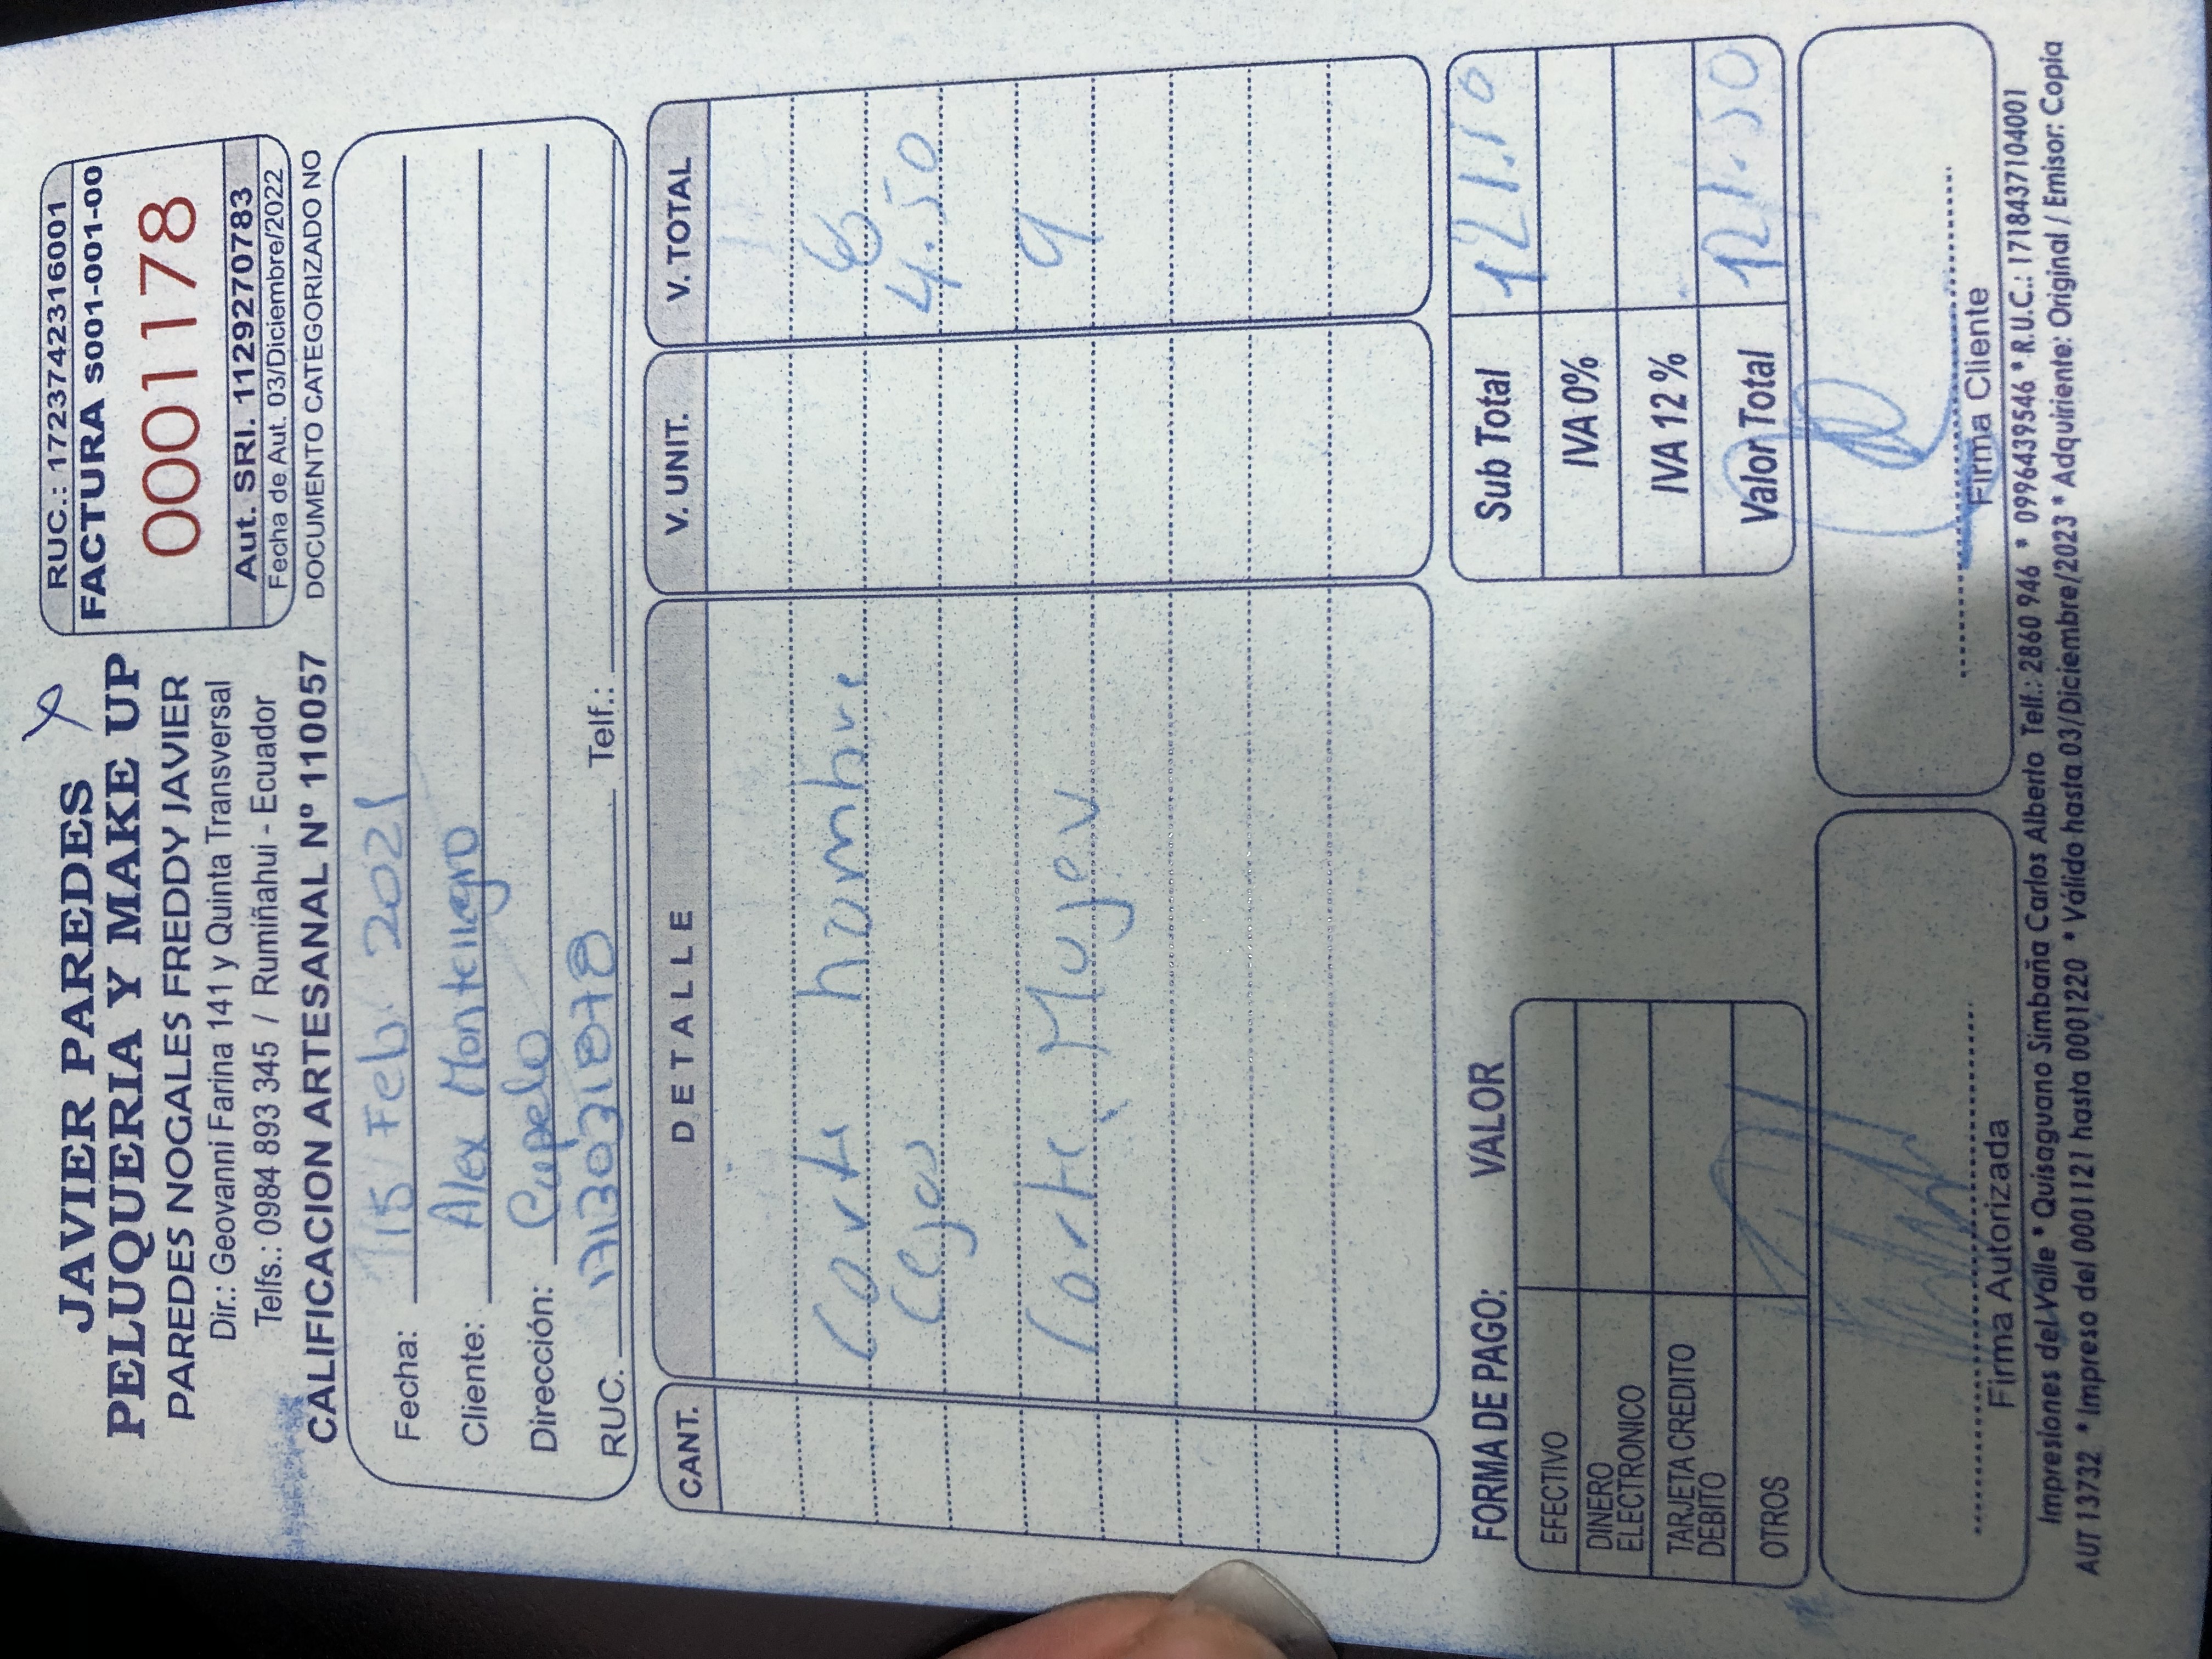 JAVIER PAREDES
PELUQUERIA Y MAKE UP
PAREDES NOGALES FREDDY JAVIER
Dir.: Geovanni Farina 141 y Quinta Transversal
Telfs.: 0984 893 345 / Rumiñahui - Ecuador
CALIFICACION ARTESANAL Nº 110057
RUC.: 1723742316001
FACTURA S001-001-00
0001178
Aut. SRI. 1129270783
Fecha de Aut. 03/Diciembre/2022
DOCUMENTO CATEGORIZADO NO
Fecha: 15 Feb. 2021
Cliente: Alex Montenegro
Dirección:
RUC. 1713031878 Telf.:
CANT. DETALLE V. UNIT. V. TOTAL
Corte hombre
Cejas 4.50
Corte Mujer 9
FORMA DE PAGO: VALOR
EFECTIVO
DINERO
ELECTRONICO
TARJETA CREDITO
DEBITO
OTROS
Sub Total
IVA 0%
IVA 12 %
Valor Total 121.50
Firma Autorizada
Firma Cliente
Impresiones del Valle * Quisaguano Simbaña Carlos Alberto Telf.: 2860 946 * 0996439546 * R.U.C.: 1718437104001
AUT 13732 * Impreso del 0001121 hasta 0001220 * Válido hasta 03/Diciembre/2023 * Adquiriente: Original / Emisor: Copia